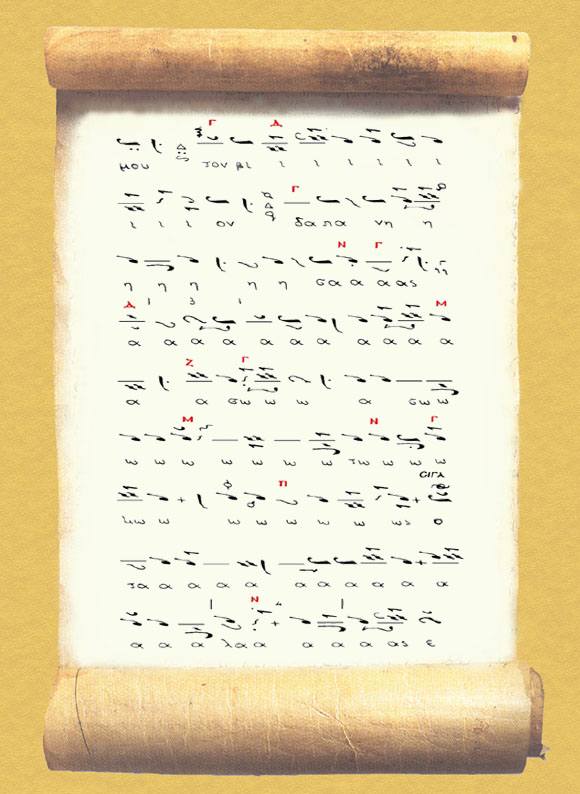 Γ Δ
μου τον βι ι ι ι ι ι ι
Γ
ι ι ι ον δα πα νη η
Ν Γ
η η η η η σα α α ας
Δ Μ
α α α α α α α α α α α
Ζ Γ
α α σω ω ω α σω ω
Μ Ν Γ
ω ω ω ω ω ω ω τω ω ω ω
σιγα
Π
ω ω ω ω ω ω ω ως ο
τα α α α α α α α α α α
Ν
α α α λα α α α α ας ε